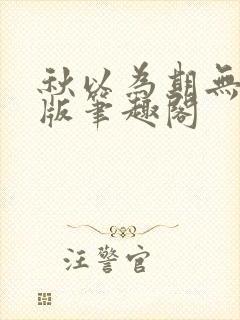 秋以為期無
版筆趣閣
汪警官